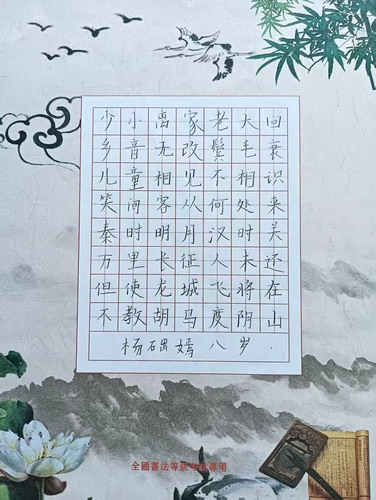 少小离家老大回
乡音无改鬓毛衰
儿童相见不相识
笑问客从何处来
秦时明月汉时关
万里长征人未还
但使龙城飞将在
不教胡马度阴山
杨础嫣 八岁
全國書法等級考試專用